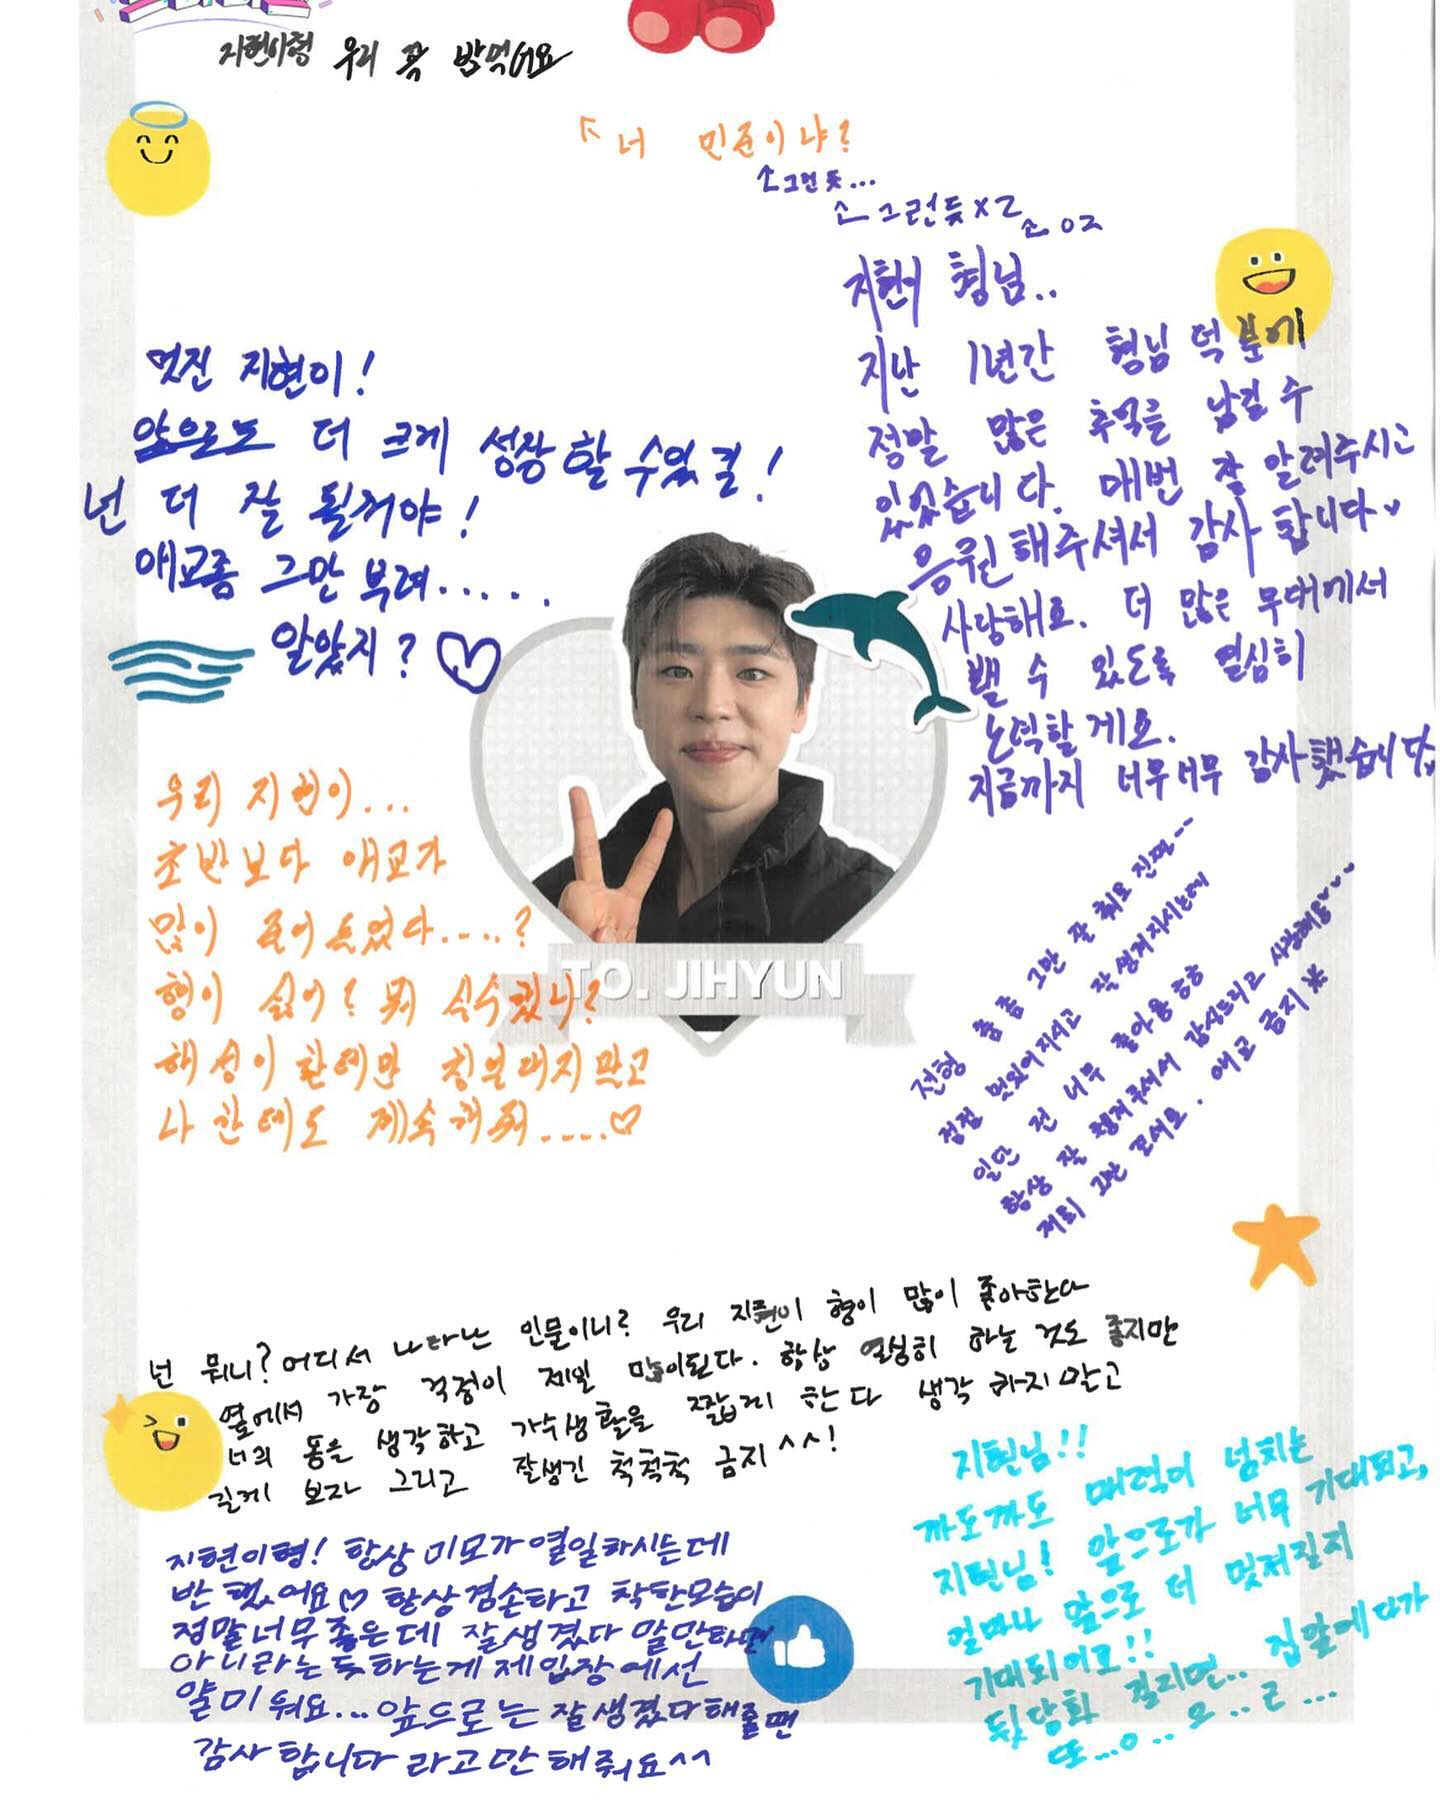 지현이형 우리 꼭 밥먹어요
너 민준이냐?
그런 듯...
그런듯x2
멋진 지현이!
앞으로도 더 크게 성장 할 수 있길!
넌 더 잘 될거야!
애교좀 그만 부려.....
알았지?
지현이 형님..
지난 1년간 형님 덕분에
정말 많은 추억을 남길 수
있었습니다. 매번 잘 알려주시고
응원해주셔서 감사합니다
사랑해요. 더 많은 무대에서
뵐 수 있도록 열심히
노력할게요.
지금까지 너무너무 감사했습니다
우리 지현이...
초반보다 애교가
많이 줄어들었다....?
형이 싫어? 뭐 실수했니?
해성이한테만 칭얼대지말고
나한테도 계속해줘....♡
TO. JIHYUN
춤 좀 그만 잘 춰요 진짜--
점점 멋있어지시고 잘생겨지시는데
일단 전 너무 좋아용 ㅎㅎ
항상 잘 챙겨주셔서 감사드리고 사랑해용
저희 그만 꼬셔요. 애교 금지
넌 뭐니? 어디서 나타난 인물이니? 우리 지현이 형이 많이 좋아한다
옆에서 가장 걱정이 제일 많이된다. 항상 열심히 하는 것도 좋지만
너의 몸을 생각하고 가수생활을 짧게 한다 생각 하지말고
길게 보자 그리고 잘생긴 척척척 금지^^!
지현이형! 항상 미모가 열일하시는데
반했어요♡ 항상겸손하고 착한모습이
정말너무좋은데 잘생겼다 말만하면
아니라는 듯하는게 제입장에선
얄미워요... 앞으로는 잘생겼다해줄땐
감사합니다 라고만해줘요^^
지현님!!
까도까도 매력이 넘치는
지현님! 앞으로가 너무 기대되고,
얼마나 앞으로 더 멋져질지
기대되어요!!
뒷담화 걸리면.. 집앞에다가